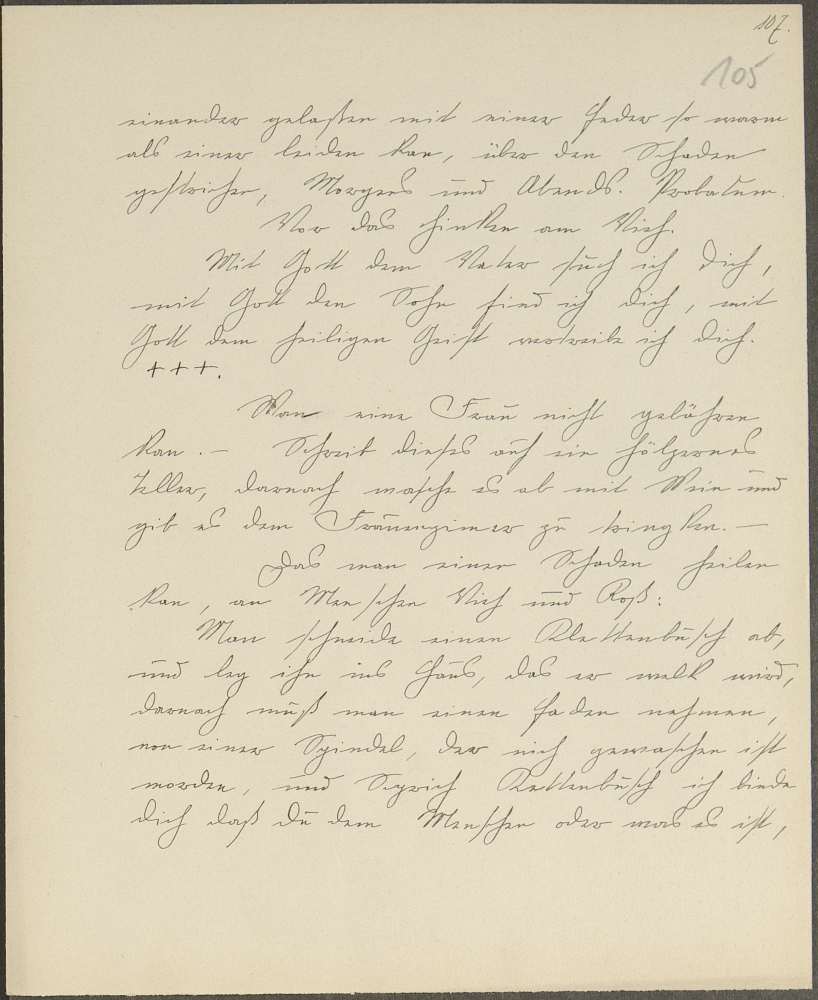 107.
105
einander gelaßen mit einer Feder so warm
als einer leiden kan, über den Schaden
gestrichen, Morgens und Abends. Probatum.
Vor das hinken am Vieh.
Mit Gott dem Vater such ich dich,
mit Gott den Sohn find ich dich, mit
Gott dem heiligen Geist vertreibe ich dich.
+++.
Wan eine Frau nicht gelähren
kan. — Schreib dieses auf ein hölzernes
Teller, darnach wasche es ab mit Wein und
gib es dem Frauenzimer zu tringken. —
Das man einen Schaden heilen
kan, an Menschen Vieh und Roß:
Man schneide einen Klettenbusch ab,
und leg ihn ins Haus, das er welk wird,
darnach muß man einen Faden nehmen,
von einer Spindel, der nich gewaschen ist
worden, und Sprich Klettenbusch ich binde
dich daß du dem Menschen oder was es ist,